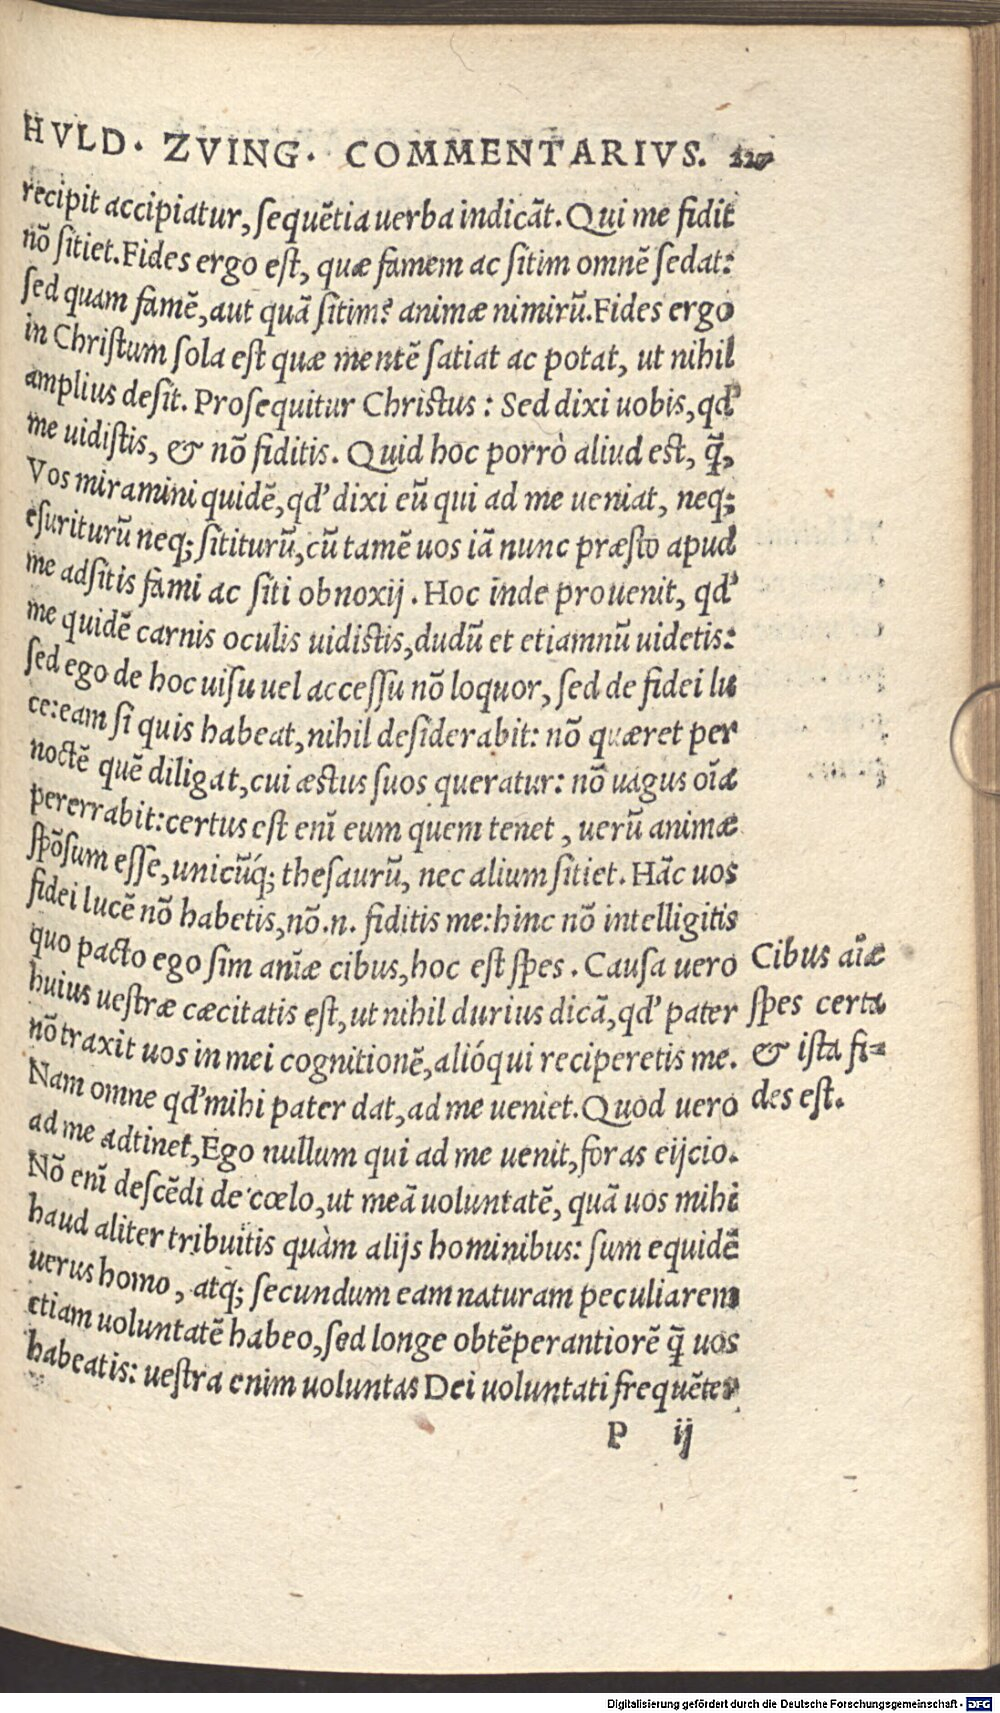 HVLD. ZVING. COMMENTARIVS.
recipit accipiatur, sequẽtia uerba indicãt. Qui me fidit
nõ sitiet. Fides ergo est, quæ famem ac sitim omnẽ sedat:
sed quam famẽ, aut quã sitim? animæ nimirũ. Fides ergo
in Christum sola est quæ mentẽ satiat ac potat, ut nihil
amplius desit. Prosequitur Christus: Sed dixi uobis, qd'
me uidistis, & nõ fiditis. Quid hoc porrò aliud est, q̃,
Vos miramini quidẽ, qd' dixi eũ qui ad me ueniat, neq;
esuriturũ neq; sititurũ, cũ tamẽ uos iã nunc præsto apud
me adsitis fami ac siti obnoxij. Hoc inde prouenit, qd'
me quidẽ carnis oculis uidistis, dudũ et etiamnũ uidetis:
sed ego de hoc uisu uel accessu nõ loquor, sed de fidei lu
ce: eam si quis habeat, nihil desiderabit: nõ quæret per
noctẽ quẽ diligat, cui æstus suos queratur: nõ uagus oĩa
pererrabit: certus est enĩ eum quem tenet, uerũ animæ
spõsum esse, unicũq́; thesaurũ, nec alium sitiet. Hãc uos
fidei lucẽ nõ habetis, nõ.n. fiditis me: hinc nõ intelligitis
quo pacto ego sim anĩæ cibus, hoc est spes. Causa uero
huius uestræ cæcitatis est, ut nihil durius dicã, qd' pater
nõ traxit uos in mei cognitionẽ, alióqui reciperetis me.
Nam omne qd' mihi pater dat, ad me ueniet. Quod uero
ad me adtinet, Ego nullum qui ad me uenit, foras eijcio.
Nõ enĩ descẽdi de cœlo, ut meã uoluntatẽ, quã uos mihi
haud aliter tribuitis quàm alijs hominibus: sum equidẽ
uerus homo, atq; secundum eam naturam peculiarem
etiam uoluntatẽ habeo, sed longe obtẽperantiorẽ q̃ uos
habeatis: uestra enim uoluntas Dei uoluntati frequẽter
P ij
Cibus aĩæ
spes certa
& ista fi=
des est.
Digitalisierung gefördert durch die Deutsche Forschungsgemeinschaft - DFG